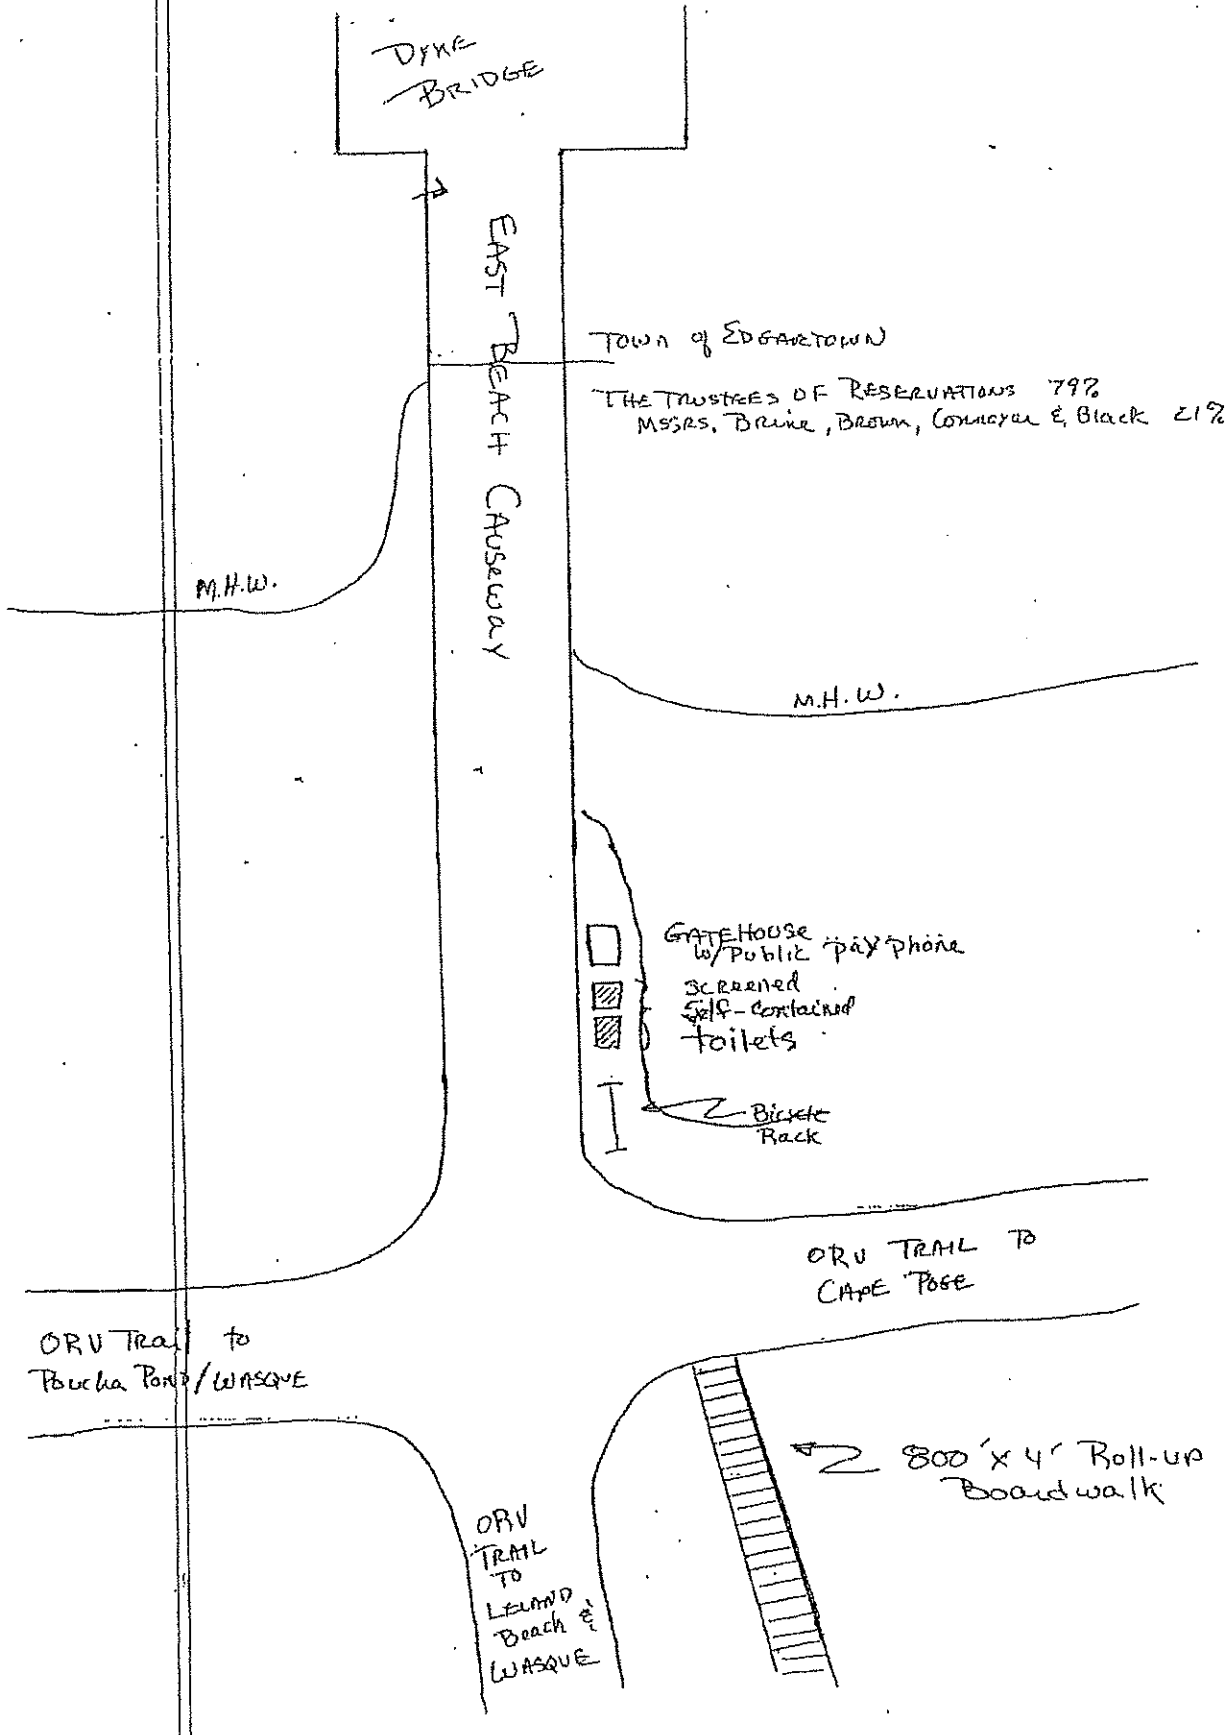 DYKE
BRIDGE
EAST BEACH CAUSEWAY
TOWN of EDGARTOWN
THE TRUSTEES OF RESERVATIONS 79%
MSSRS. Brine, Brown, & Black 21%
M.H.W.
M.H.W.
GATEHOUSE
w/Public pay phone
screened
self-contained
toilets
Bicycle
Rack
ORV TRAIL TO
CAPE POGE
ORV Trail to
Poucha Pond/WASQUE
800' x 4' Roll-up
Boardwalk
ORV
TRAIL
TO
LELAND
Beach &
WASQUE